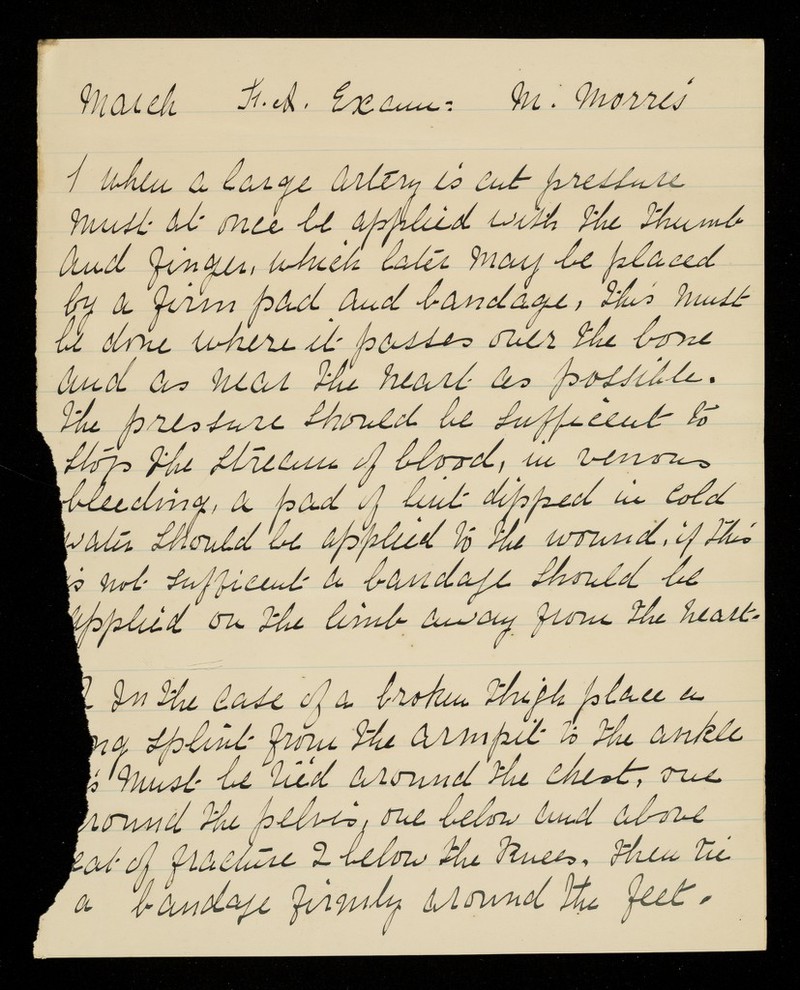 March F.A. Exam= M. Morris
1 when a large artery is cut pressure
must at once be applied with the thumb
and finger, which later may be placed
by a firm pad and bandage, this must
be done where it passes over the bone
and as near the heart as possible.
the pressure should be sufficent to
stop the stream of blood, in venous
bleeding, a pad of lint dipped in cold
water should be applied to the wound, if this
is not sufficent a bandage should be
applied on the limb away from the heart.
2 In the case of a broken thigh place a
ng splint from the armpit to the ankle
s must be tied around the chest, one
round the pelvis, one below and above
eat of fracture 2 below the knees, then tie
a bandage firmly around the feet.